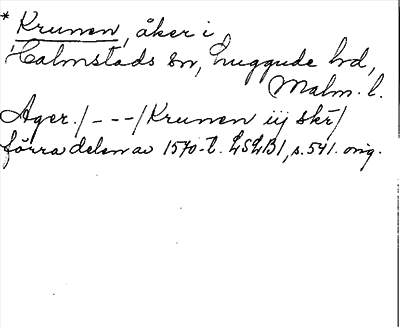 * Krunen, åker i
Halmstads sn, Luggude hd,
Malm. l.
Ager. / - - - / Krunen iij skr /
förra delen av 1570-t. LSLB1, s. 541. orig.